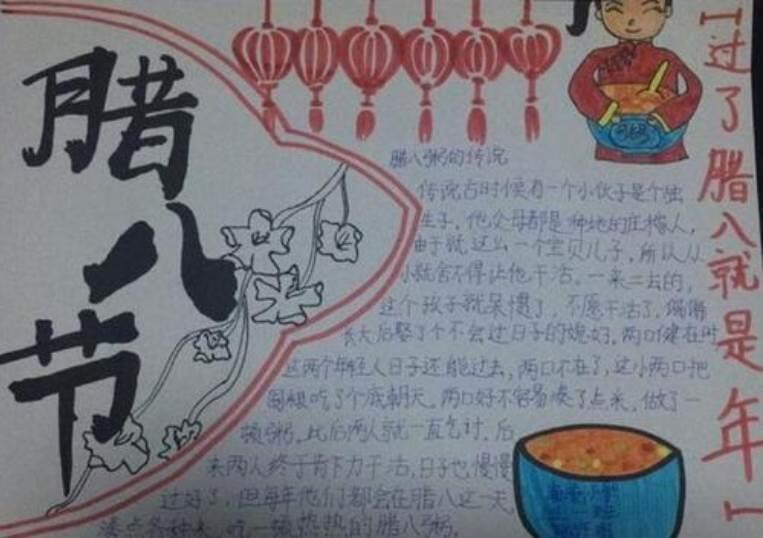 腊八节
腊八粥的传说
传说古时候有一个小伙子是个独
生子，他父母都是种地的庄稼人，
由于就这么一个宝贝儿子，所以从
小就舍不得让他干活。一来二去的，
这个孩子就呆惯了，不愿干活了，偏偏
长大后娶了个不会过日子的媳妇。两口健在时
这两个年轻人日子还能过去，两口不在了，这小两口把
吃了个底朝天。两口好不容易凑了点米，做了一
顿粥。此后两人就一直乞讨，后
来两人终于肯下力干活，日子也慢慢
过好了，但每年他们都会在腊八这一天，
凑点各种米，吃一顿热热的腊八粥。
过了腊八就是年